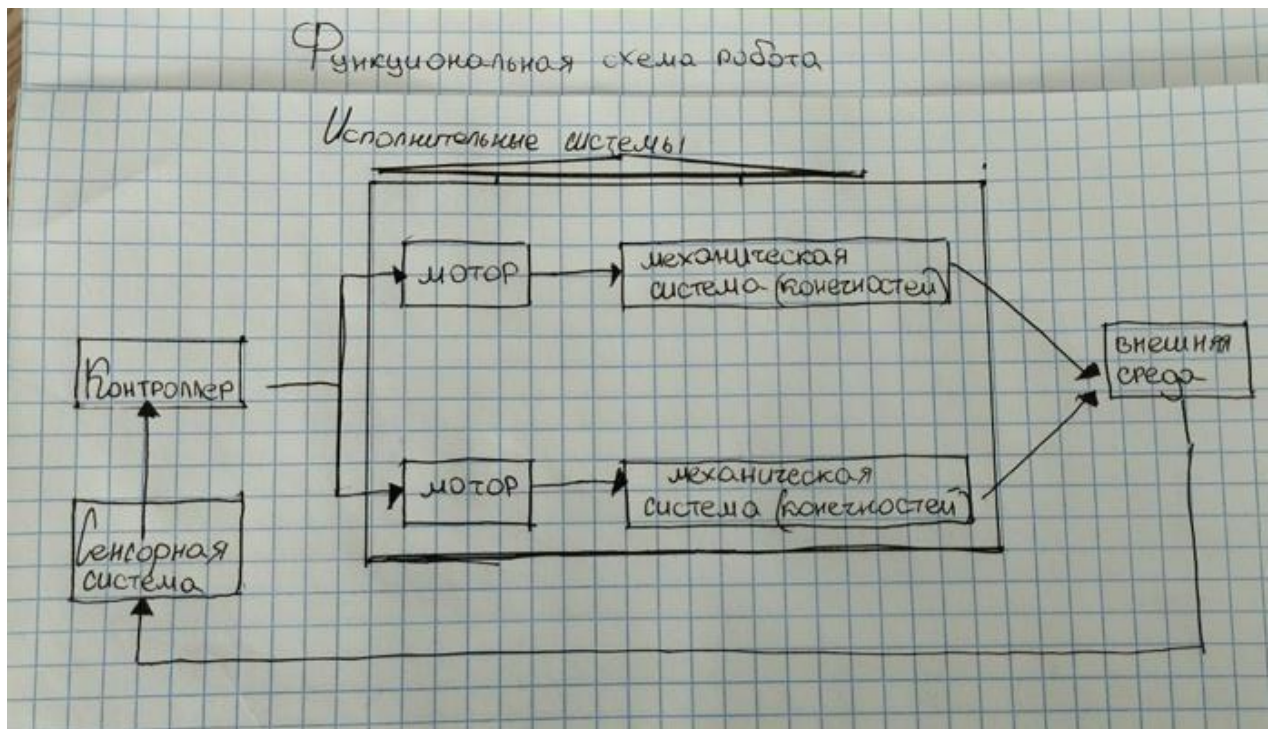 Функциональная схема робота
Исполнительные системы
мотор
механическая
система (конечностей)
Контроллер
внешняя
среда
мотор
механическая
система (конечностей)
Сенсорная
система